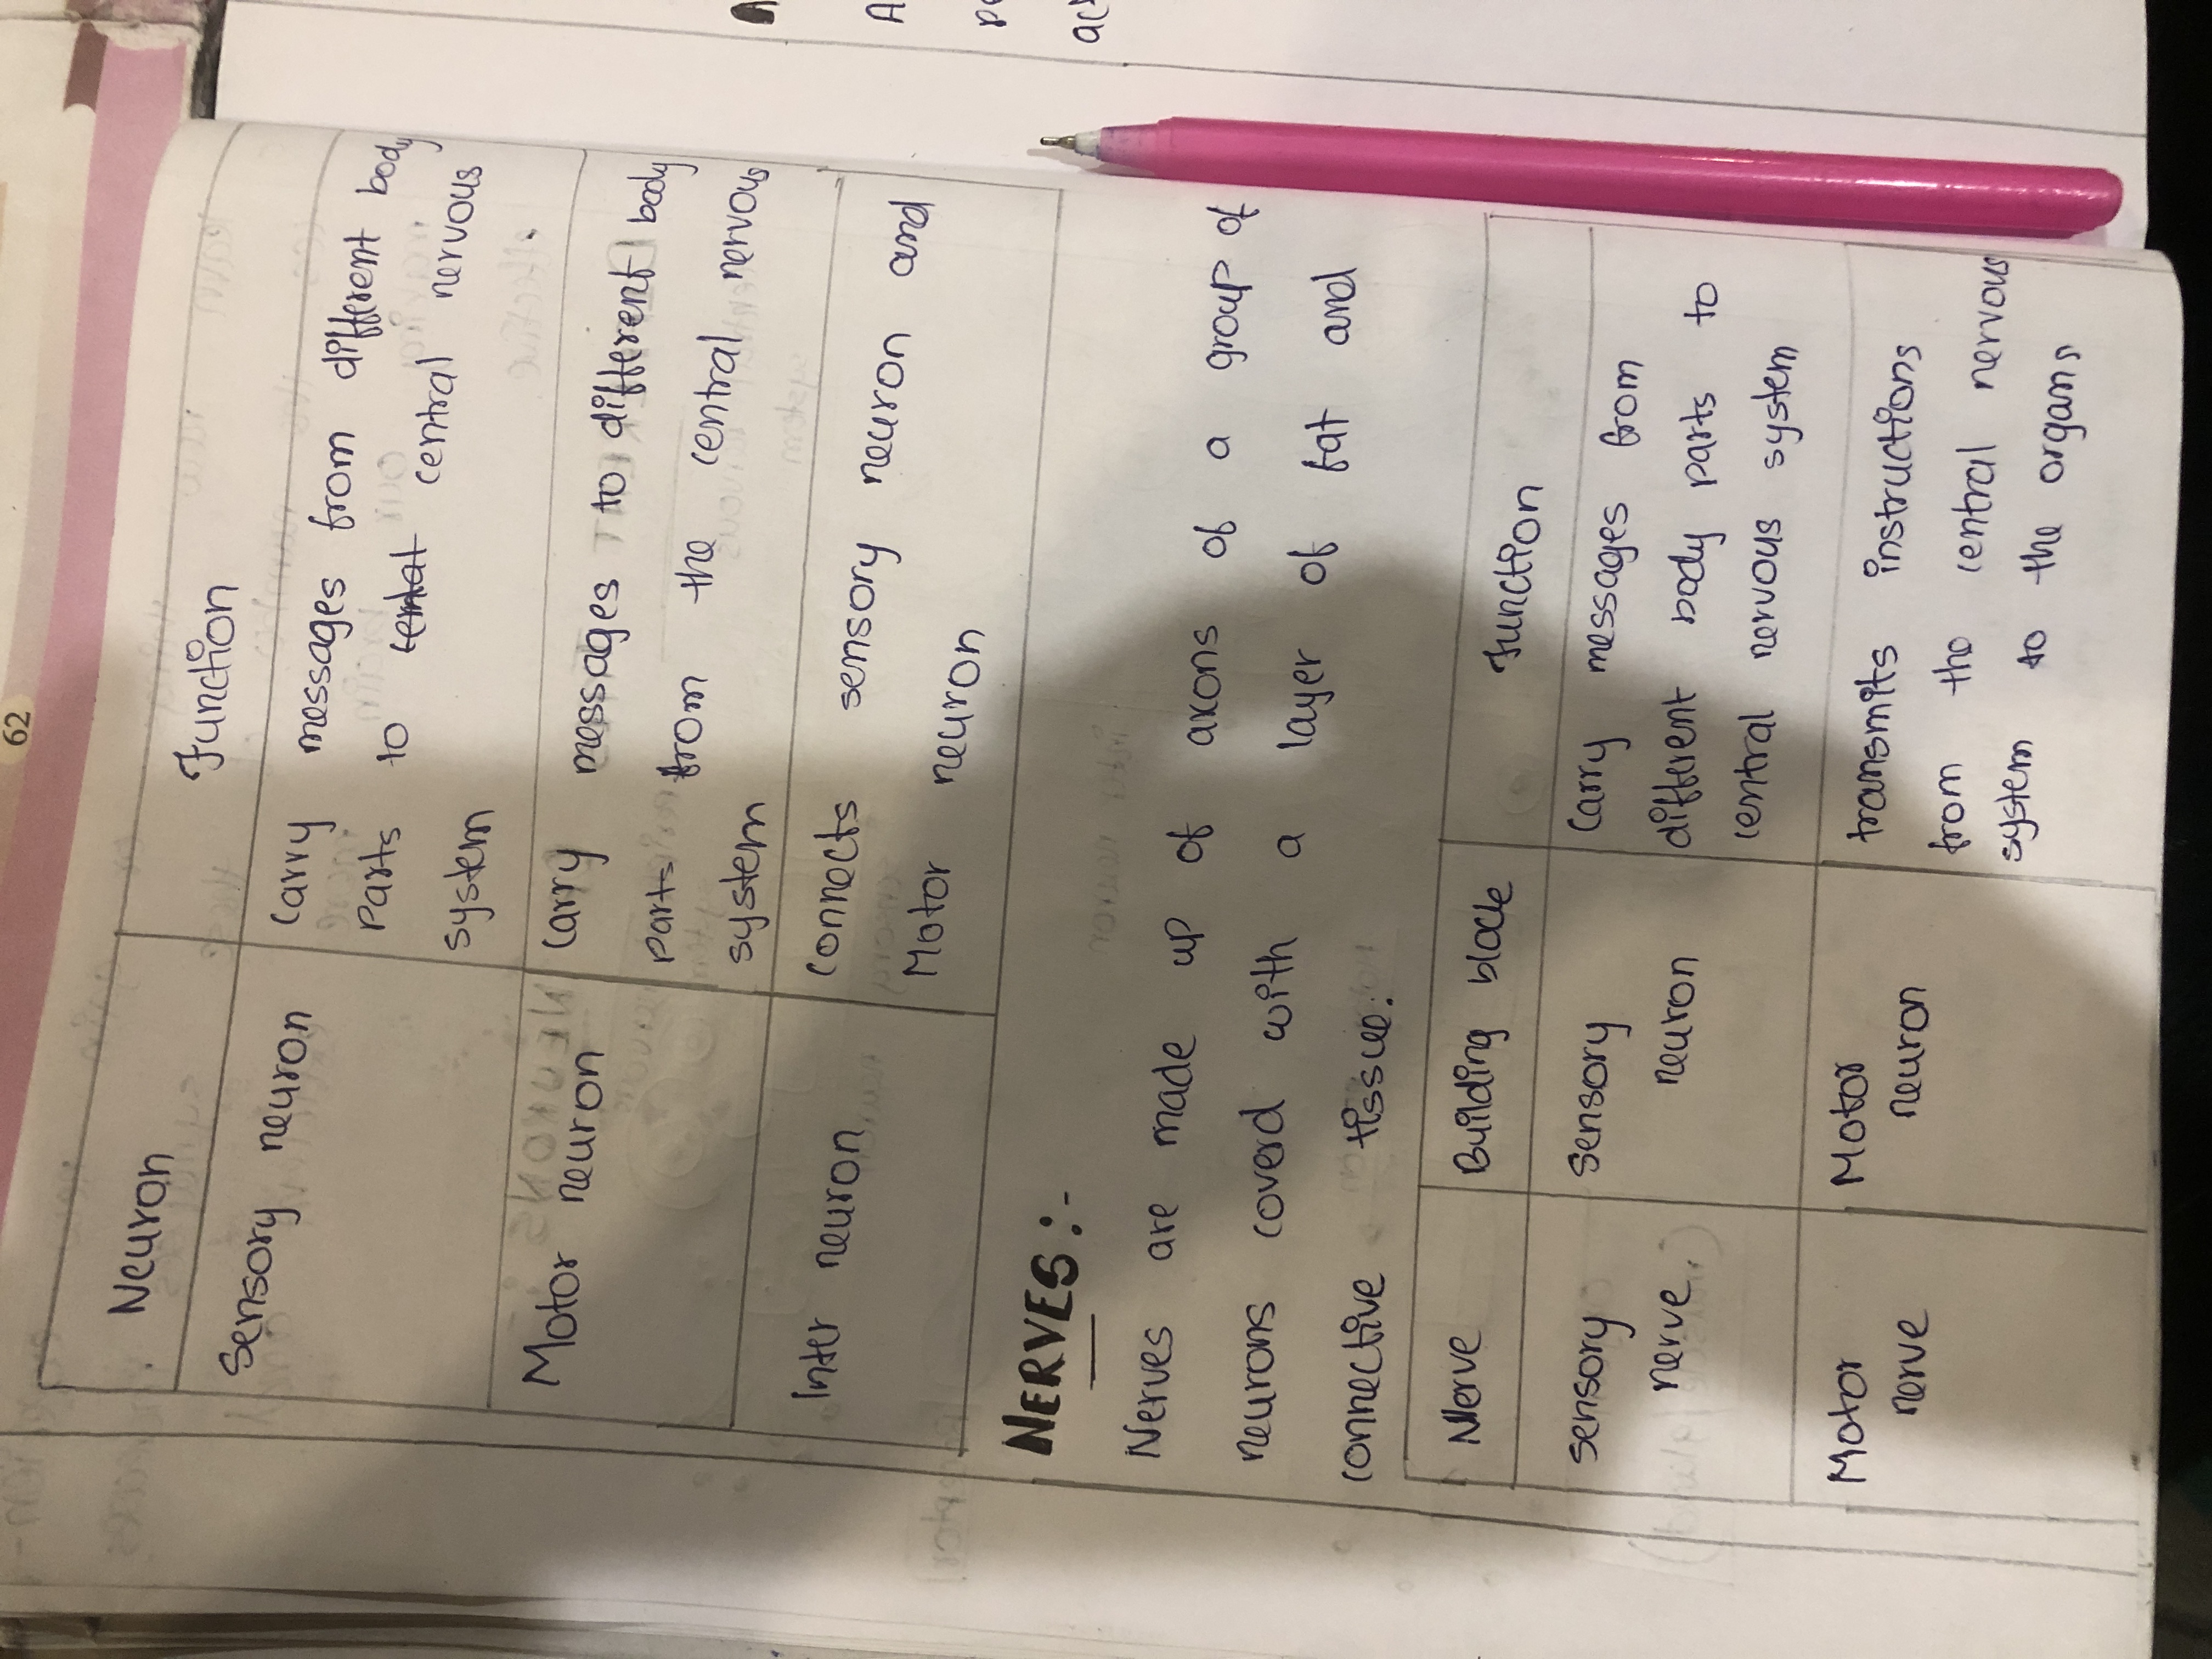 62
Neuron Function
Sensory neuron Carry messages from different body
Parts to central nervous
system
Motor neuron Carry messages to different body
parts from the central nervous
system
Inter neuron Connects sensory neuron and
Motor neuron
NERVES:-
Nerves are made up of axons of a group of
neurons coverd with a layer of fat and
connective tissue.
Nerve Building block Function
sensory sensory Carry messages from
nerve neuron different body parts to
central nervous system
Motor Motor transmits instructions
nerve neuron from the central nervous
system to the organs